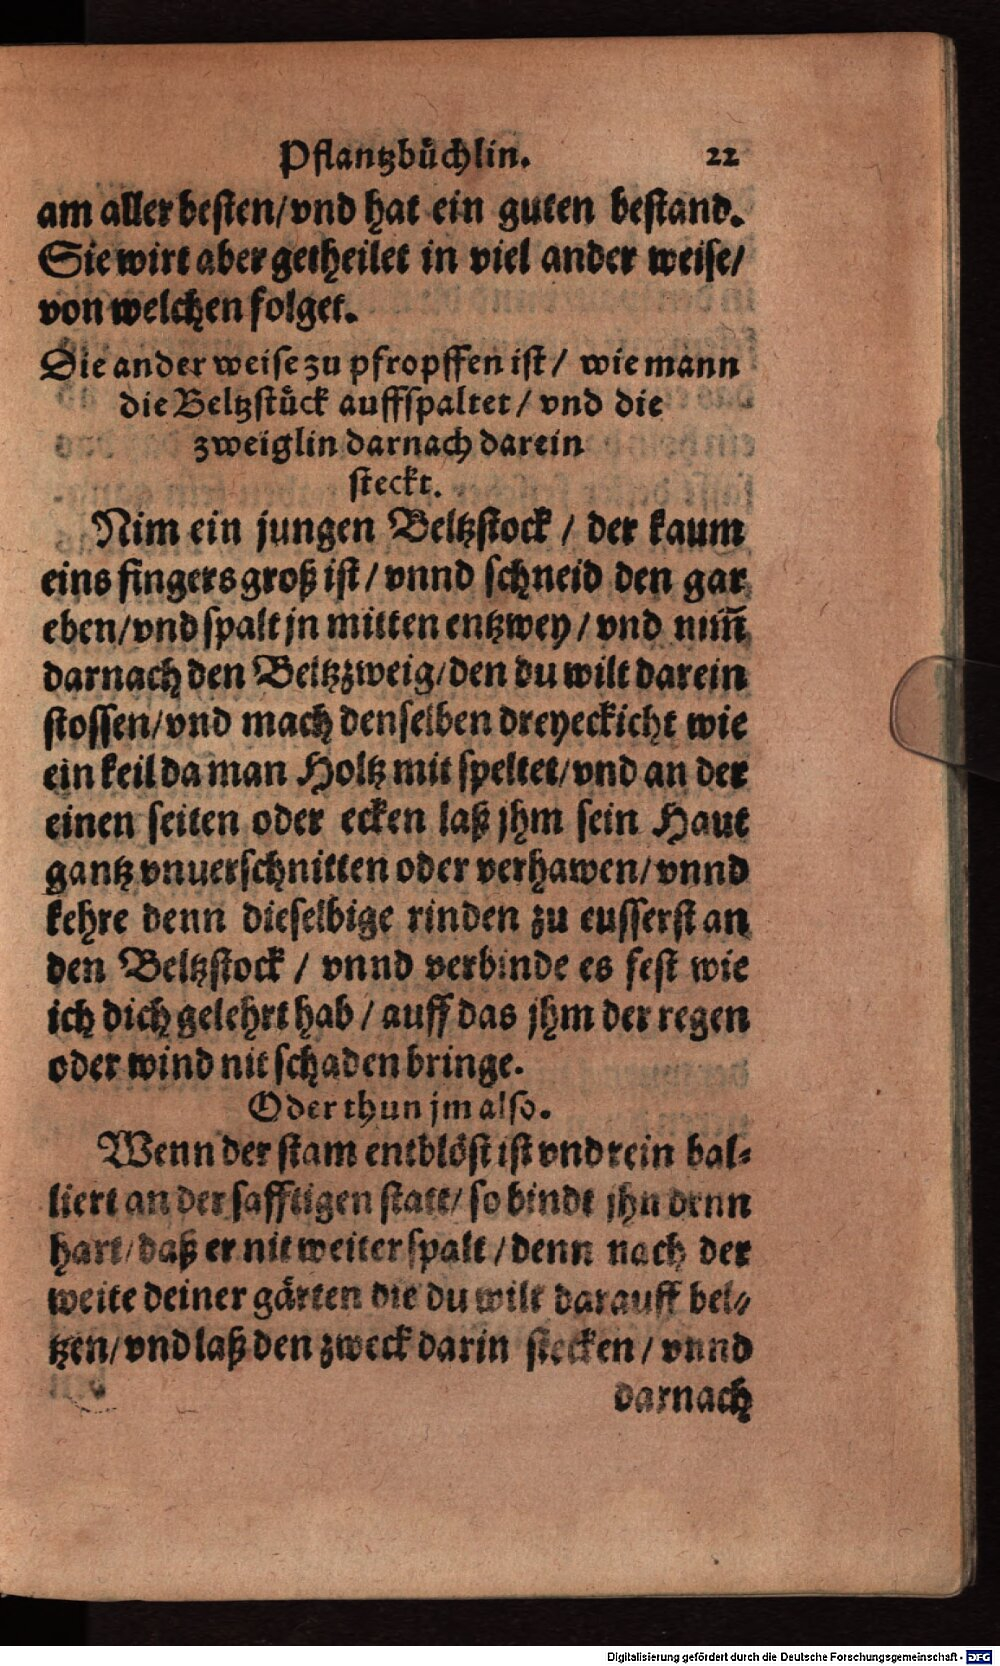 Pflantzbuͤchlin. 22
am aller besten/vnd hat ein guten bestand.
Sie wirt aber getheilet in viel ander weise/
von welchen folget.
Die ander weise zu pfropffen ist/ wie mann
die Beltzstuͤck auffspaltet/ vnd die
zweiglin darnach darein
steckt.
Nim ein jungen Beltzstock / der kaum
eins fingers groß ist/ vnnd schneid den gar
eben/vnd spalt jn mitten entzwey/ vnd nim̃
darnach den Beltzzweig/den du wilt darein
stossen/vnd mach denselben dreyeckicht wie
ein keil da man Holtz mit speltet/vnd an der
einen seiten oder ecken laß jhm sein Haut
gantz vnuerschnitten oder verhawen/vnnd
kehre denn dieselbige rinden zu eusserst an
den Beltzstock / vnnd verbinde es fest wie
ich dich gelehrt hab / auff das jhm der regen
oder wind nit schaden bringe.
Oder thun jm also.
Wenn der stam entbloͤst ist vnd rein bal⸗
liert an der safftigen statt/ so bindt jhn denn
hart/daß er nit weiter spalt/denn nach der
weite deiner gaͤrten die du wilt darauff bel⸗
tzen/vnd laß den zweck darin stecken/ vnnd
darnach
Digitalisierung gefördert durch die Deutsche Forschungsgemeinschaft - DFG